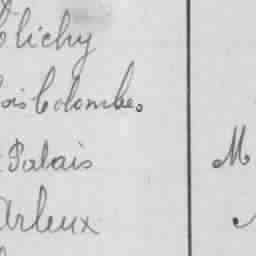 Clichy
ois Colombes.
Palais M
Arleux